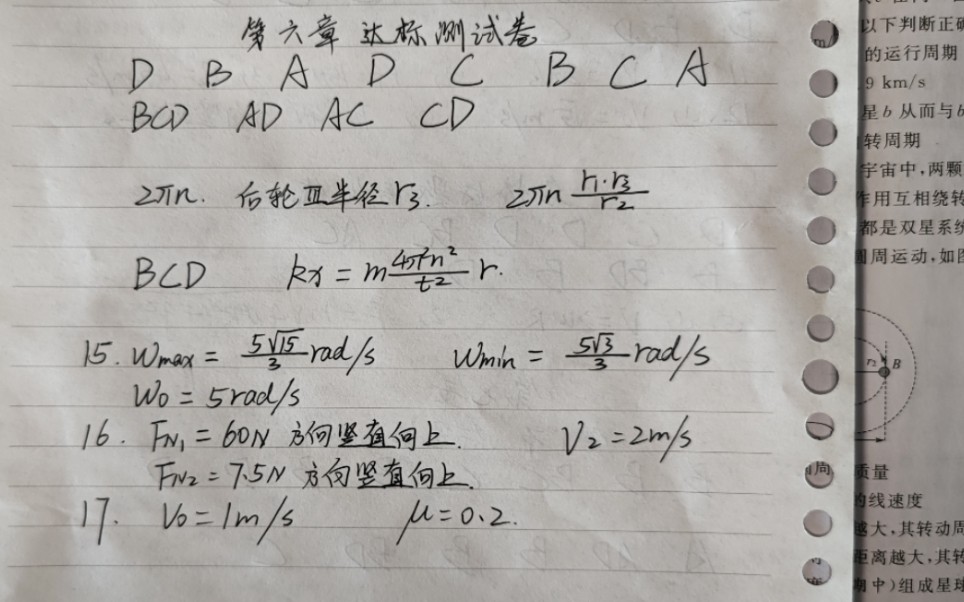 第六章 达标测试卷
D B A D C B C A
BCD AD AC CD
2πn. 后轮Ⅲ半径r₃. 2πn r₁·r₃/r₂
BCD kx = m 4π²n²/t² r.
15. Wmax = 5√15/3 rad/s Wmin = 5√3/3 rad/s
W₀ = 5rad/s
16. FN₁ = 60N 方向竖直向上. V₂ = 2m/s
FN₂ = 7.5N 方向竖直向上.
17. V₀ = 1m/s μ = 0.2.
以下判断正确
的运行周期
9 km/s
星b从而与b
转周期
宇宙中,两颗
作用互相绕转
都是双星系统
圆周运动,如图
r₂ B
周
质量
的线速度
越大,其转动周
距离越大,其转
期中)组成星球